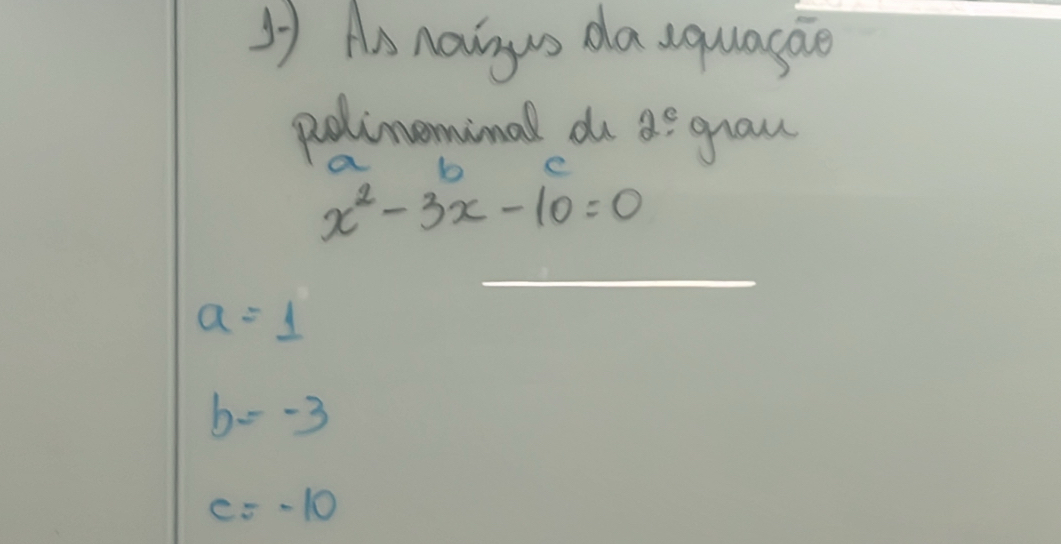 1-) As raízes da equação
polinominal de 2º grau
a b c
x² - 3x - 10 = 0
a = 1
b = -3
c = -10